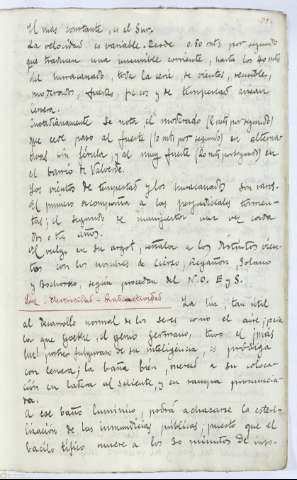 El mas constante, es el Sur.
La velocidad es variable. Desde 0.50 mts por segundo
que traducen una insensible corriente, hasta los 40 mts
del huracanado, toda la serie de vientos, sensibles,
moderados, fuertes, y de tempestad azotan
Llerena.
Ordinariamente se nota el moderado (2 mts por segundo)
que cede paso al fuerte (10 mts por segundo) en alternativa
sin fórmula, y al muy fuerte (20 mts por segundo) en
el barrio de Valverde.
Los vientos de tempestad y los huracanados son raros.
El primero acompaña a las perjudiciales tormentas;
el segundo se manifiesta una vez cada
dos o tres años.
El vulgo en su argot, señala a los distintos vientos
con los nombres de Cierzo, Regañon, Solano
y Bochorno, según procedan del N. O. E y S.
Luz - Luminosidad - Radioactividad
La luz, tan util
al desarrollo normal de los seres como el aire; por
la que Goethe, el genio germano, tuvo el (mas
luz) postrer fulguran de su inteligencia, es pródiga
con Llerena; la baña bien, merced a su colocacion
en ladera al saliente, y en rampa pronunciada.
A ese baño luminico, podrá achacarse la esterilizacion
de las inmundicias públicas, puesto que el
bacilo tifico muere a los 30 minutos de inso-